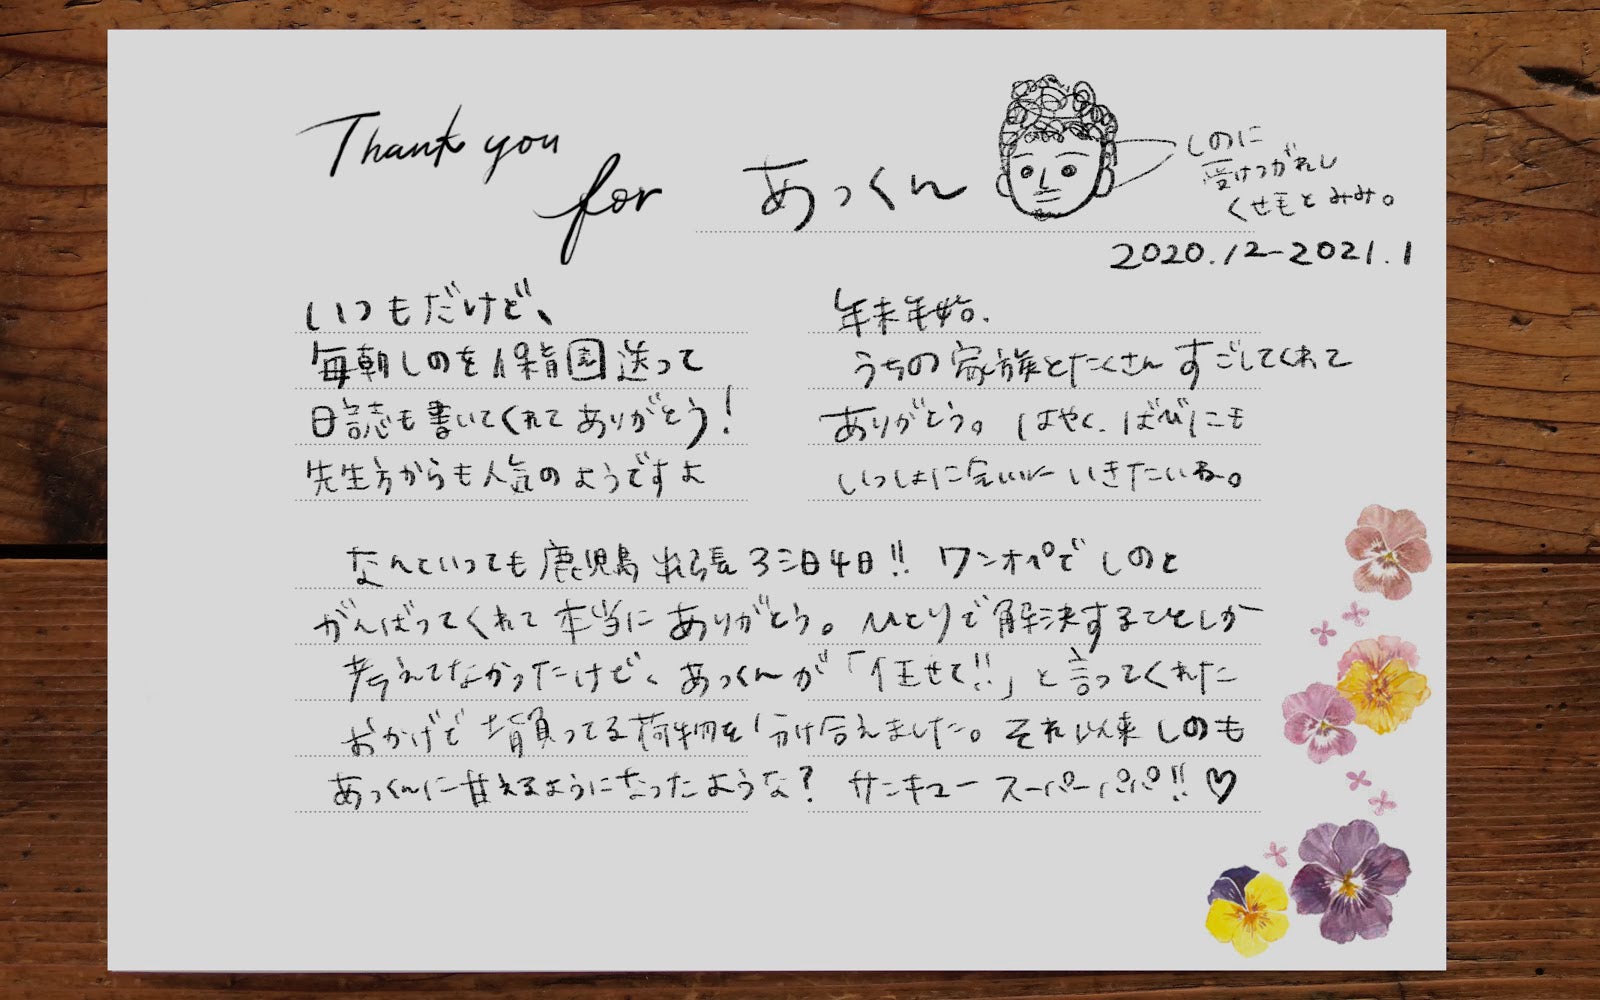 Thank you
for
あっくん
しのに
受けつがれし
くせ毛とみみ。
2020.12-2021.1
いつもだけど、
毎朝しのを保育園送って
日誌も書いてくれてありがとう!
先生方からも人気のようですよ
年末年始。
うちの家族とたくさんすごしてくれて
ありがとう。はやく、ばびにも
いっしょに会いにいきたいね。
なんといっても鹿児島出張3泊4日!! ワンオペでしのと
がんばってくれて本当にありがとう。ひとりで解決することしか
考えてなかったけど、あっくんが「任せて!!」と言ってくれた
おかげで背負ってる荷物を分け合えました。それ以来しのも
あっくんに甘えるようになったような? サンキュースーパーパパ!!♡